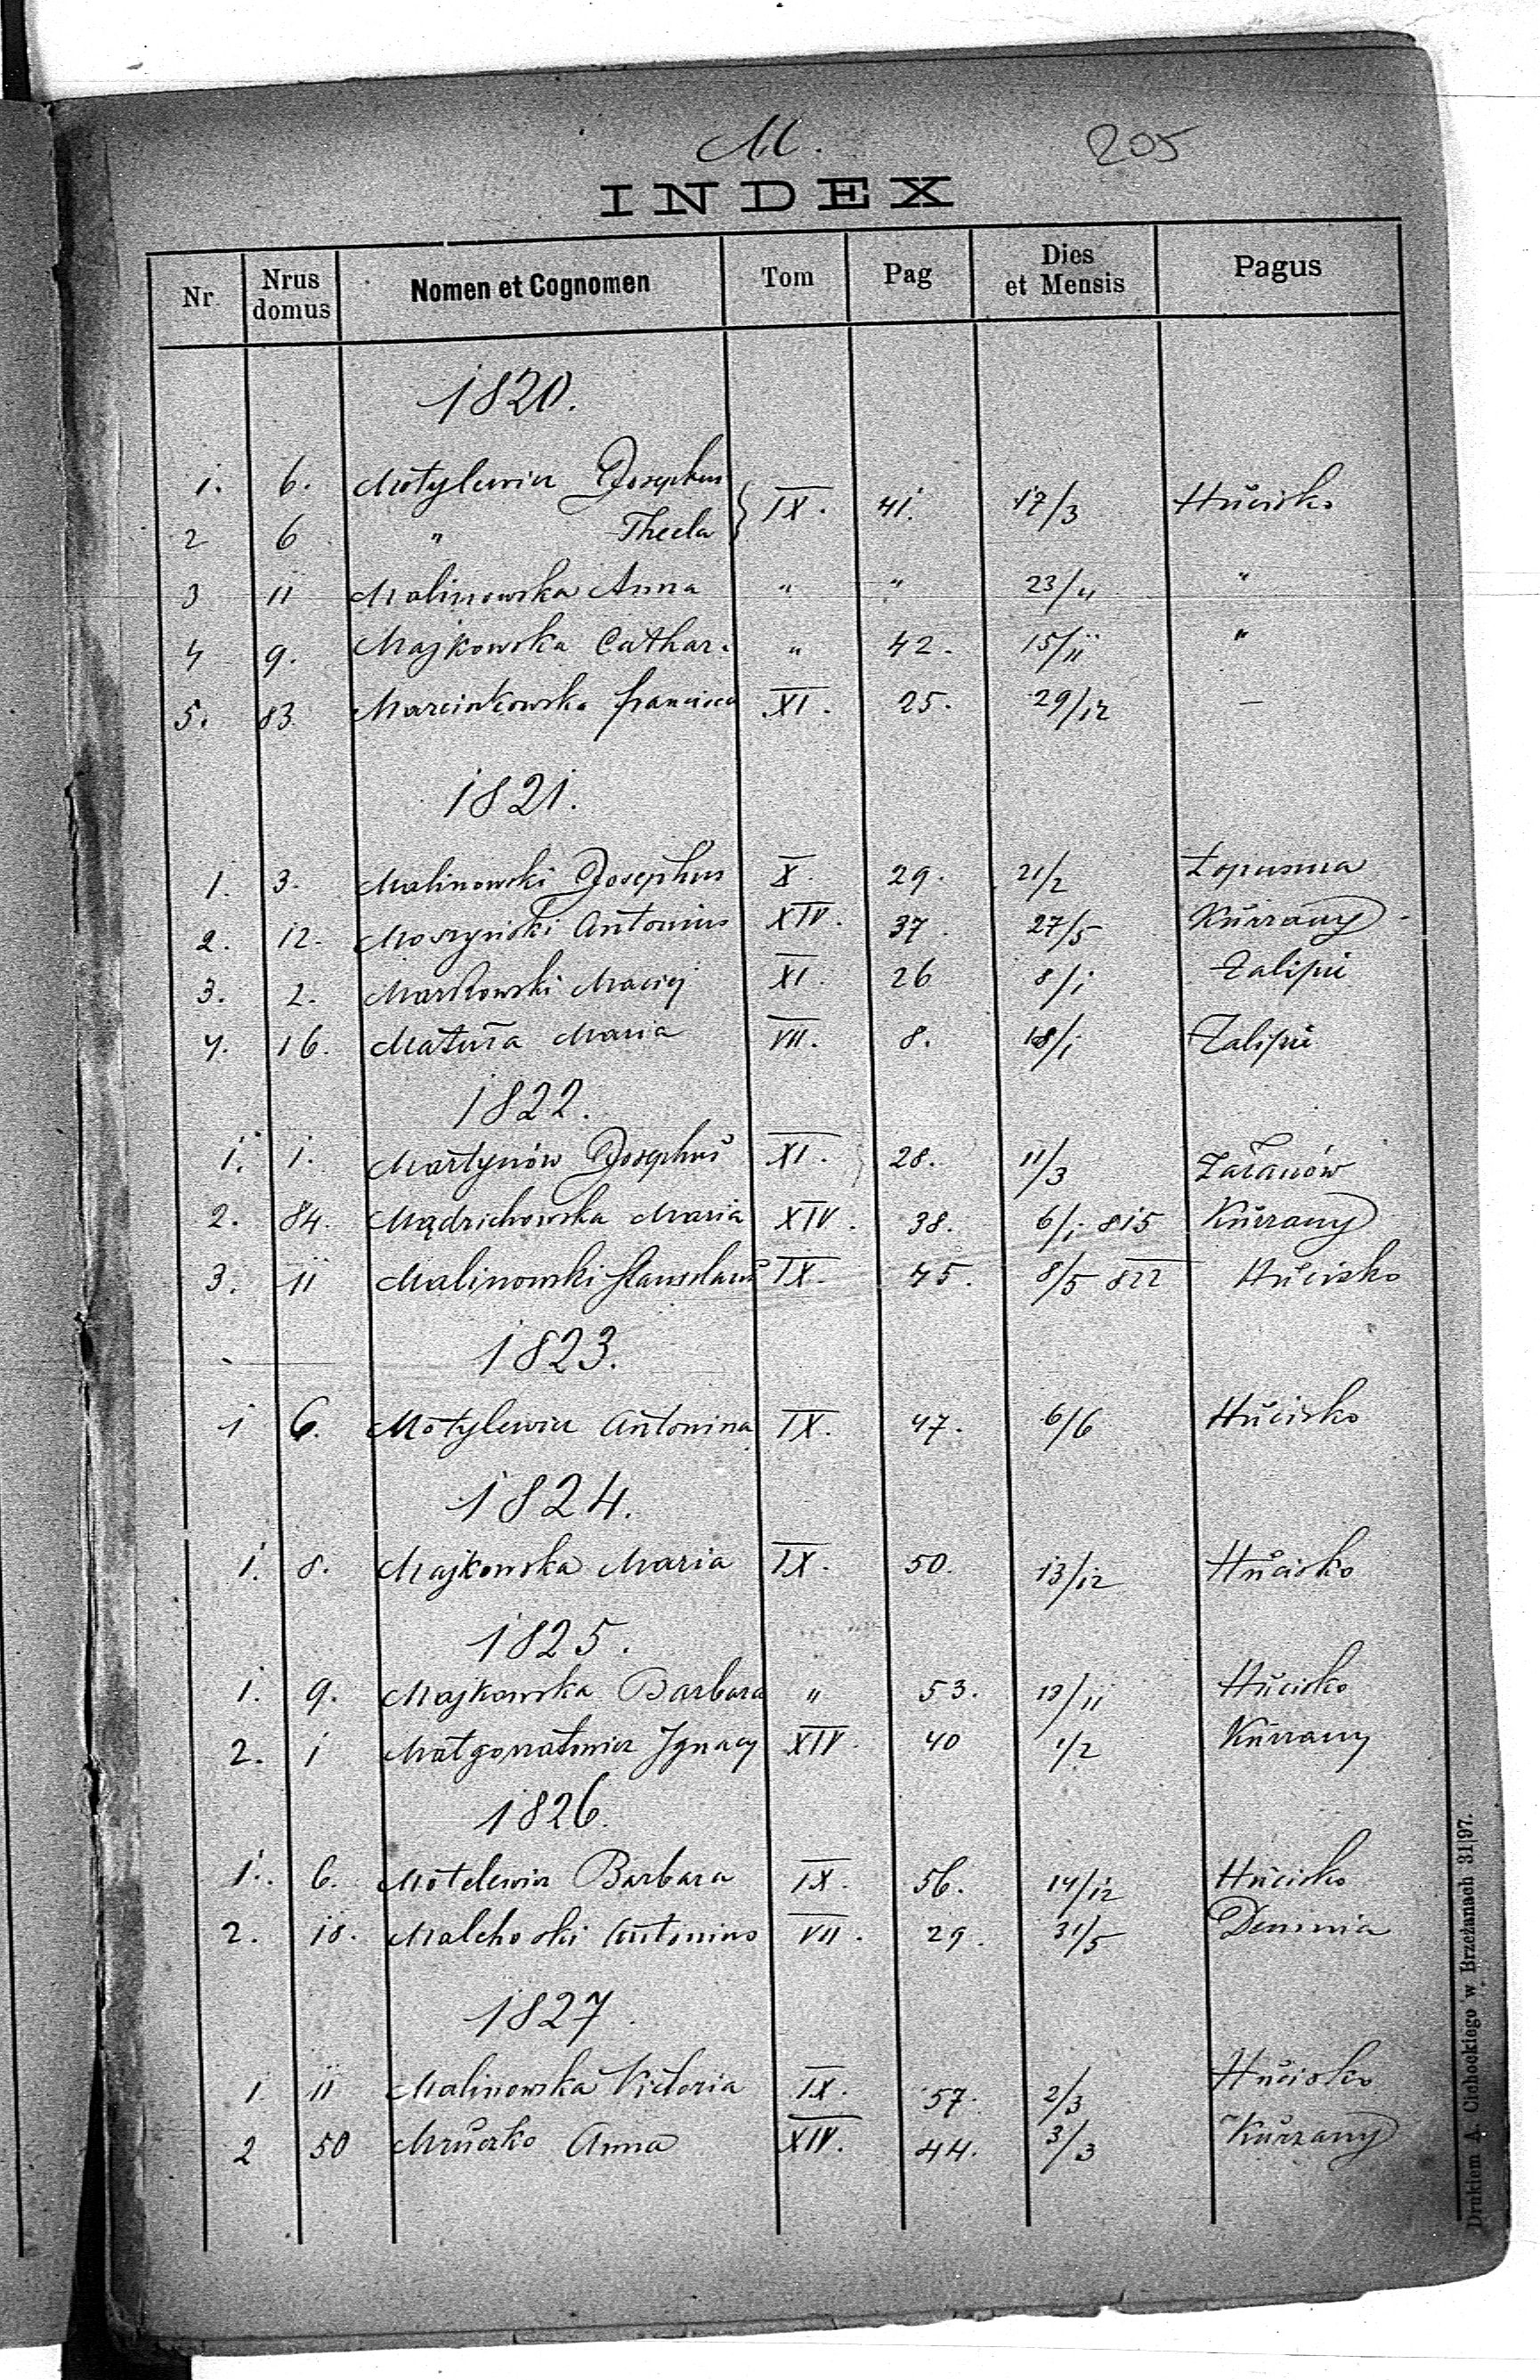 M.
205
INDEX
Nr Nrus domus Nomen et Cognomen Tom Pag Dies et Mensis Pagus
1820.
1. 6. Motylewicz Josephus IX. 41. 17/3 Hucisko
2 6 " Thecla
3 11 Malinowska Anna " " 23/4 "
4 9. Majkowska Cathar. " 42. 15/11 "
5. 83 Marcinkowska francisca XI. 25. 29/12 —
1821.
1. 3. Malinowski Josephus X. 29. 21/2 Łopuszna
2. 12. Moszyński Antonius XIV. 37. 27/5 Kurzany
3. 2. Markowski Maciej XI. 26 8/1 Zalipie
4. 16. Matura Maria VII. 8. 18/1 Zalipie
1822.
1. 1. Martynów Josephus XI. 28. 11/3 Załanów
2. 84. Mądrichowska Maria XIV. 38. 6/1 815 Kurzany
3. 11 Malinowski Stanislaus IX. 45. 8/5 822 Hucisko
1823.
1 6. Motylewicz Antonina IX. 47. 6/6 Hucisko
1824.
1. 8. Majkowska Maria IX. 50. 13/12 Hucisko
1825.
1. 9. Majkowska Barbara " 53. 13/11 Hucisko
2. 1 Ignacy XIV. 40 1/2 Kurzany
1826.
1. 6. Motelewicz Barbara IX. 56. 14/12 Hucisko
2. 18. Malchoski Antonius VII. 29. 31/5
1827.
1 11 Malinowska Victoria IX. 57. 2/3 Hucisko
2 50 Mruczko Anna XIV. 44. 3/3 Kurzany
Drukiem A. Cichockiego w Brzeżanach 31|97.